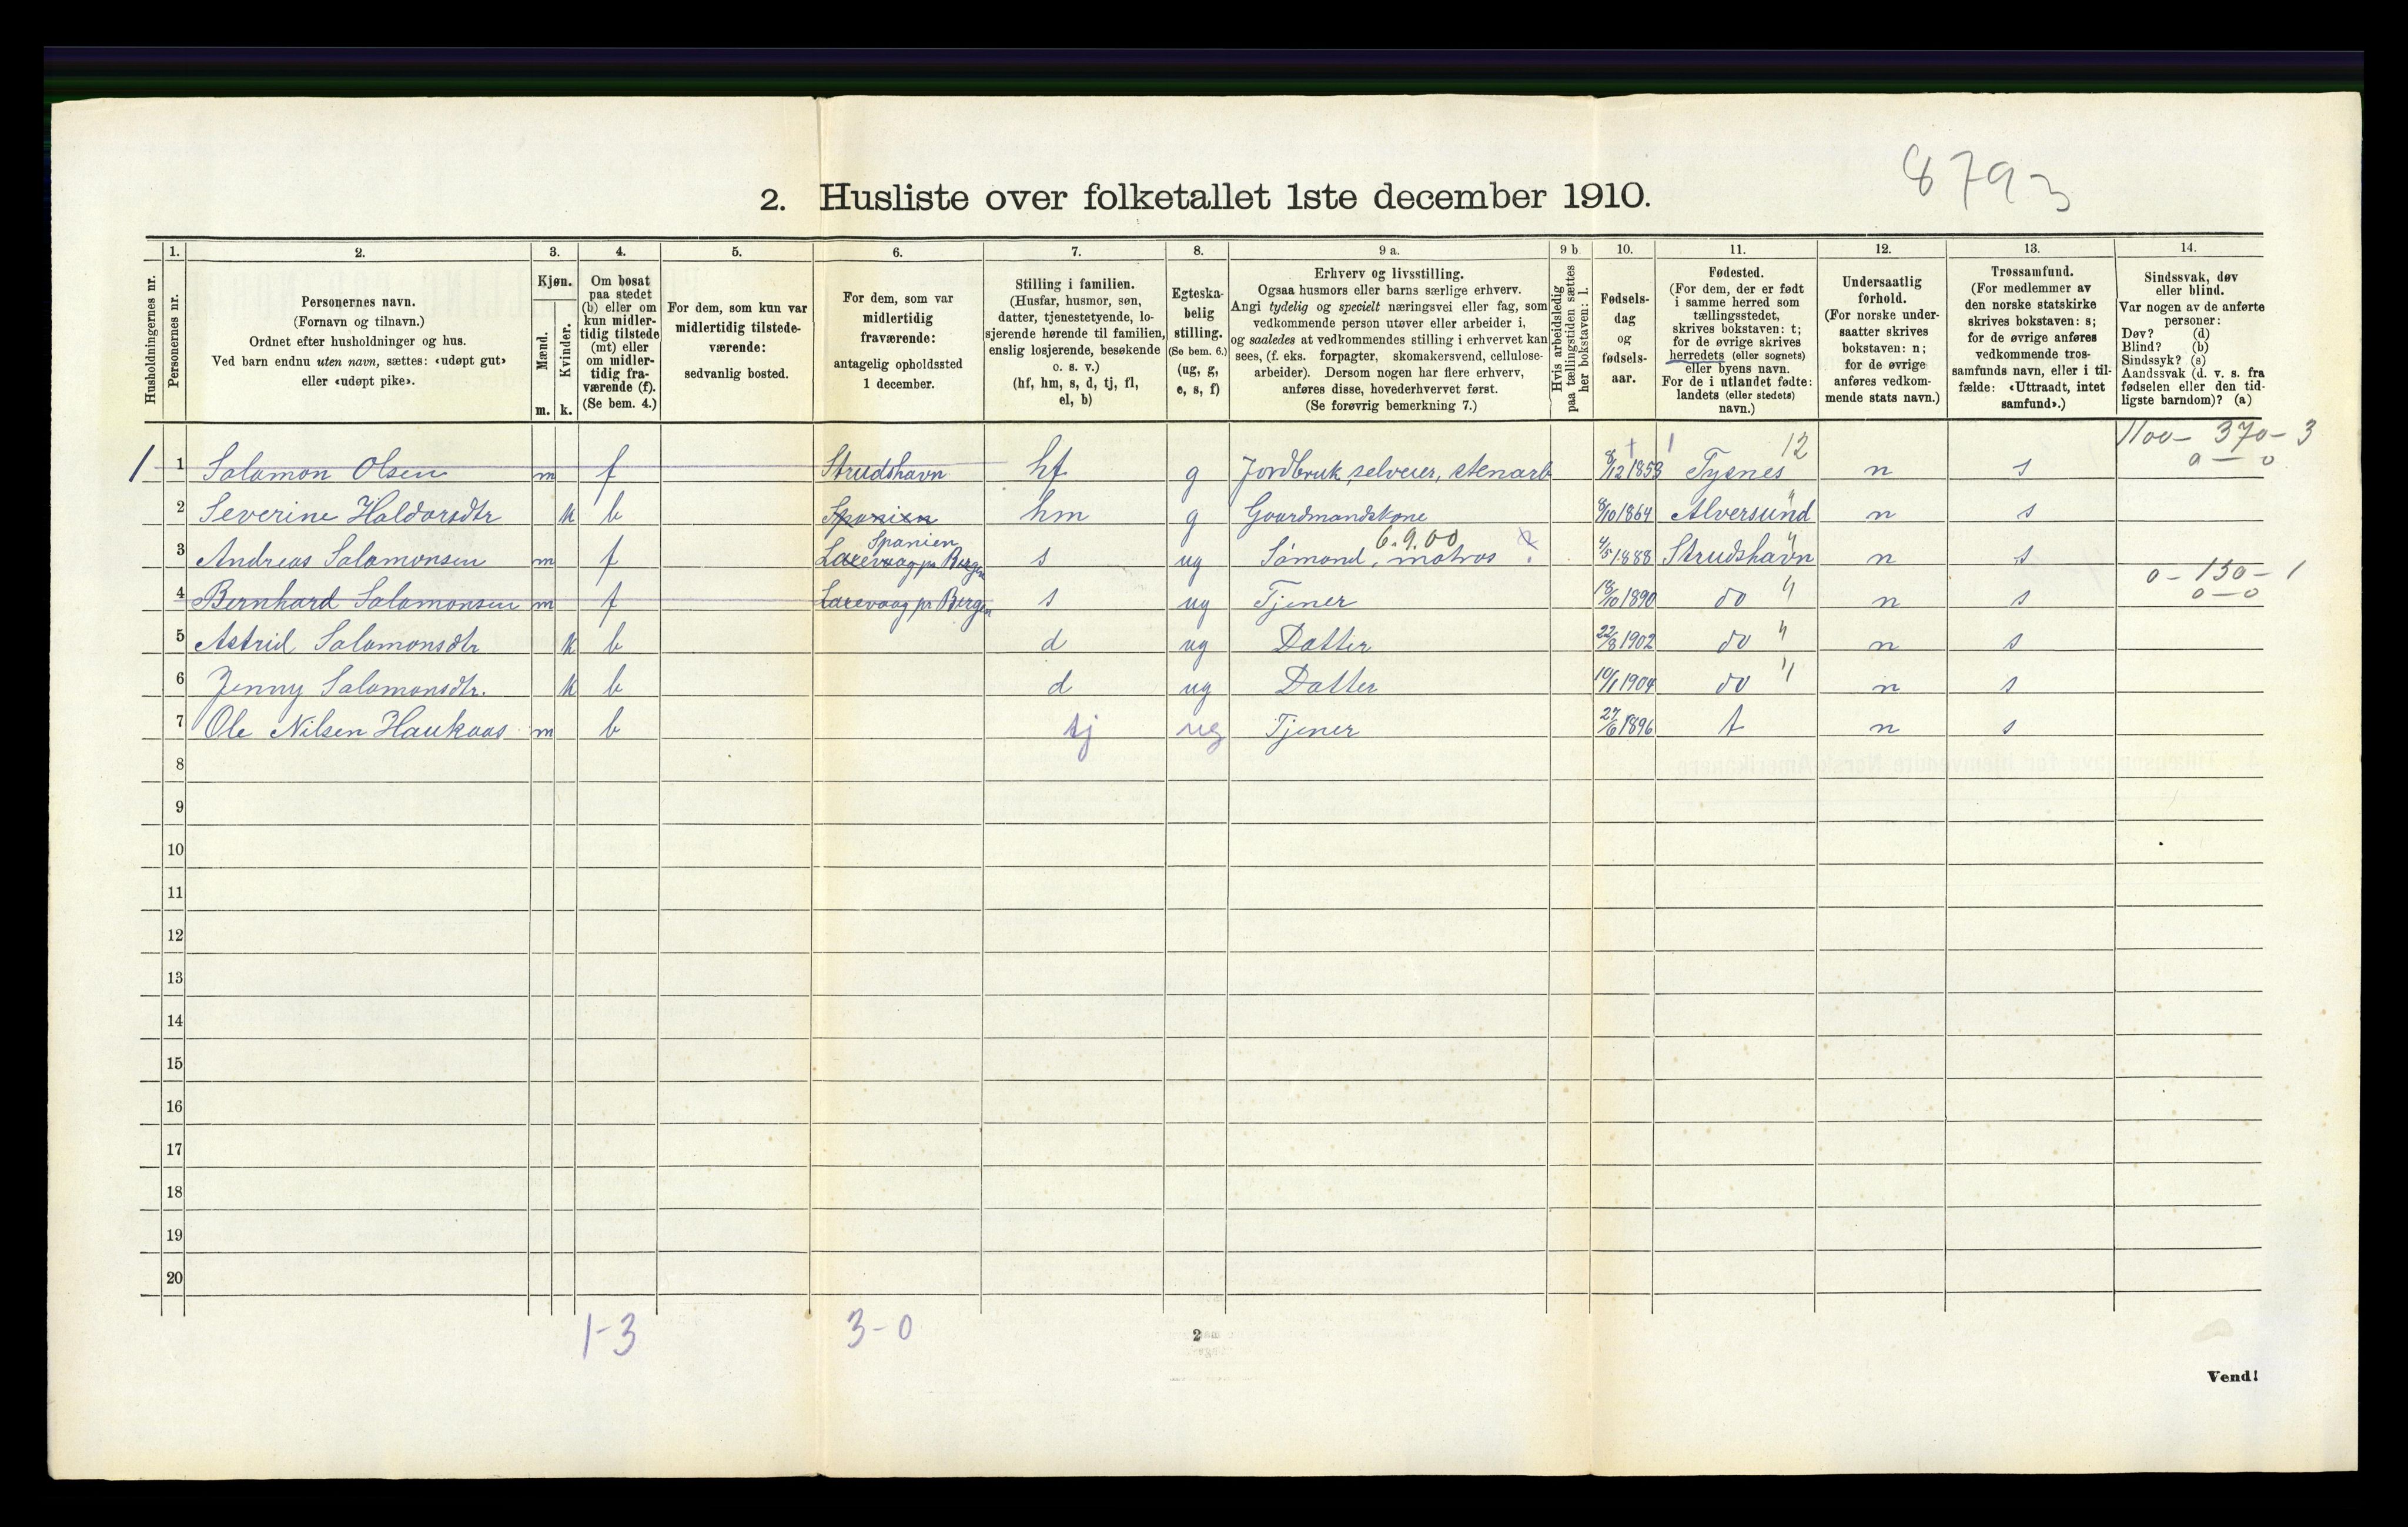 8793
2. Husliste over folketallet 1ste december 1910.
Husholdningernes nr.
1.
Personernes nr.
2.
Personernes navn.
(Fornavn og tilnavn.)
Ordnet efter husholdninger og hus.
Ved barn endnu uten navn, sættes: «udøpt gut»
eller «udøpt pike».
3.
Kjøn.
Mænd.
Kvinder.
m. k.
4.
Om bosat
paa stedet
(b) eller om
kun midler-
tidig tilstede
(mt) eller
om midler-
tidig fra-
værende (f).
(Se bem. 4.)
5.
For dem, som kun var
midlertidig tilstede-
værende:
sedvanlig bosted.
6.
For dem, som var
midlertidig
fraværende:
antagelig opholdssted
1 december.
7.
Stilling i familien.
(Husfar, husmor, søn,
datter, tjenestetyende, lo-
sjerende hørende til familien,
enslig losjerende, besøkende
o. s. v.)
(hf, hm, s, d, tj, fl,
el, b)
8.
Egteska-
belig
stilling.
(Se bem. 6.)
(ug, g,
e, s, f)
9 a.
Erhverv og livsstilling.
Ogsaa husmors eller barns særlige erhverv.
Angi tydelig og specielt næringsvei eller fag, som
vedkommende person utøver eller arbeider i,
og saaledes at vedkommendes stilling i erhvervet kan
sees, (f. eks. forpagter, skomakersvend, cellulose-
arbeider). Dersom nogen har flere erhverv,
anføres disse, hovederhvervet først.
(Se forøvrig bemerkning 7.)
9 b.
Hvis arbeidsledig
paa tællingstiden sættes
her bokstaven: l.
10.
Fødsels-
dag
og
fødsels-
aar.
11.
Fødested.
(For dem, der er født
i samme herred som
tællingsstedet,
skrives bokstaven: t;
for de øvrige skrives
herredets (eller sognets)
eller byens navn.
For de i utlandet fødte:
landets (eller stedets)
navn.)
12.
Undersaatlig
forhold.
(For norske under-
saatter skrives
bokstaven: n;
for de øvrige
anføres vedkom-
mende stats navn.)
13.
Trossamfund.
(For medlemmer av
den norske statskirke
skrives bokstaven: s;
for de øvrige anføres
vedkommende tros-
samfunds navn, eller i til-
fælde: «Uttraadt, intet
samfund».)
14.
Sindssvak, døv
eller blind.
Var nogen av de anførte
personer:
Døv? (d)
Blind? (b)
Sindssyk? (s)
Aandssvak (d. v. s. fra
fødselen eller den tid-
ligste barndom)? (a)
1100 - 370 - 3
0 — 0
12
1 1 Salamon Olsen m f Strudshavn hf g Jordbruk, selveier, stenarb 8/12 1853 Tysnes n s
2 Severine Haldorsdtr k b Spanien hm g Gaardmandskone 8/10 1864 Alversund n s
Spanien 6.9.00
3 Andreas Salamonsen m f Laxevaag pr Bergen s ug Sömand, matros 4/5 1888 Strudshavn n s
0 - 130 - 1
0 — 0
4 Bernhard Salamonsen m f Laxevaag pr Bergen s ug Tjener 18/10 1890 do n s
5 Astrid Salamonsdtr k b d ug Datter 22/8 1902 do n s
6 Jenny Salamonsdtr. k b d ug Datter 10/1 1904 do n s
7 Ole Nilsen Haukaas m b tj ug Tjener 27/6 1896 t n s
8
9
10
11
12
13
14
15
16
17
18
19
20
1-3 3-0
2
Vend!